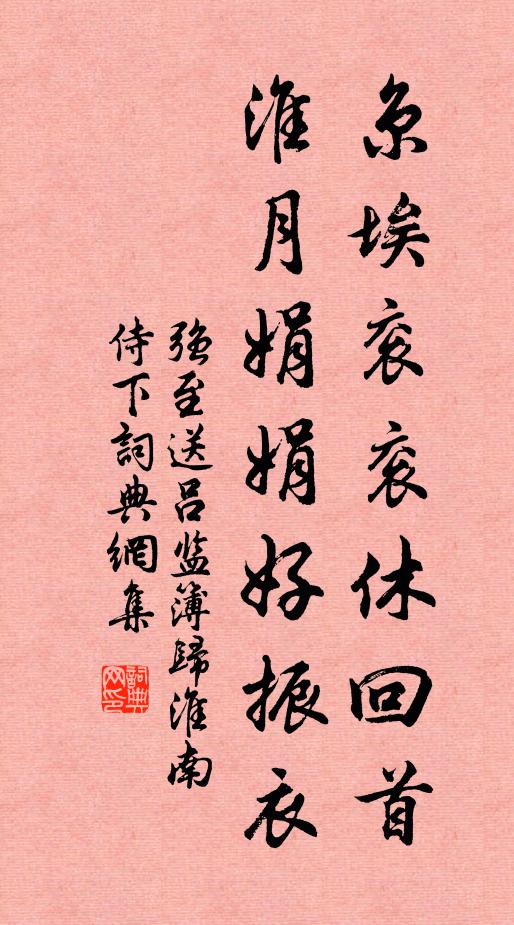 京埃衮衮休回首
淮月娟娟好振衣
强至送吕监簿歸淮南
侍下詞典網集
詞典网印